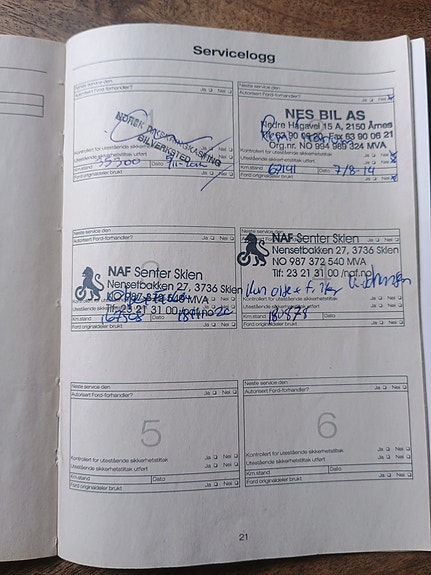 Servicelogg
Neste service den
Autorisert Ford-forhandler? Ja Nei
NORSK
BILVERKSTED
Kontrollert for utestående sikkerhetstiltak
Utestående sikkerhetstiltak utført Ja Nei
Km.stand 35300 Dato
Ford originaldeler brukt Ja Nei
Neste service den
Autorisert Ford-forhandler? Ja Nei
NES BIL AS
Nedre Hagavei 15 A, 2150 Årnes
Tlf 63 90 06 20 Fax 63 90 06 21
Org.nr. NO 994 989 324 MVA
Kontrollert for utestående sikkerhetstiltak
Utestående sikkerhetstiltak utført Ja Nei
Km.stand 62191 Dato 7/8-14
Ford originaldeler brukt Ja Nei
Neste service den
Autorisert Ford-forhandler? Ja Nei
NAF Senter Skien
Nensetbakken 27, 3736 Skien
NO 987 372 540 MVA
Tlf: 23 21 31 00 /naf.no
Km.stand
Ford originaldeler brukt Ja Nei
NAF Senter Skien
Nensetbakken 27, 3736 Skien
NO 987 372 540 MVA
Tlf: 23 21 31 00 /naf.no
Kontrollert for utestående sikkerhetstiltak
Utestående sikkerhetstiltak utført
Km.stand 180878
Ford originaldeler brukt Ja Nei
Neste service den
Autorisert Ford-forhandler? Ja Nei
5
Kontrollert for utestående sikkerhetstiltak Ja Nei
Utestående sikkerhetstiltak utført Ja Nei
Km.stand Dato
Ford originaldeler brukt Ja Nei
Neste service den
Autorisert Ford-forhandler? Ja Nei
6
Kontrollert for utestående sikkerhetstiltak Ja Nei
Utestående sikkerhetstiltak utført Ja Nei
Km.stand Dato
Ford originaldeler brukt Ja Nei
21